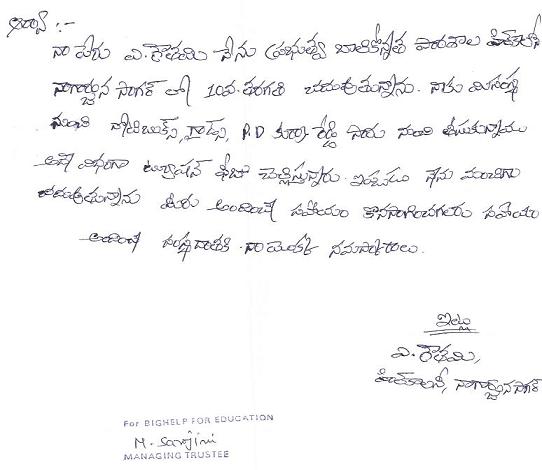 ఆర్యా :-
నా పేరు ఎ. గౌతమి నేను ప్రభుత్వ బాలికోన్నత పాఠశాల హిల్ కాలనీ
నాగార్జున సాగర్ లో 10వ. తరగతి చదువుతున్నాను. నాకు మీ సంస్థ
నుంచి నోట్ బుక్స్, P.D రెడ్డి సారు నుంచి తీసుకున్నాము
అదే విధంగా ట్యూషన్ ఫీజు చెల్లిస్తున్నారు. ఇప్పుడు నేను మంచిగా
చదువుతున్నాను మీరు అందించే సహాయం కొనసాగించగలరు సహాయం
అందించే సంస్థ నా యొక్క నమస్కారాలు.
ఇట్లు
ఎ. గౌతమి,
హిల్ కాలనీ, నాగార్జున సాగర్
For BIGHELP FOR EDUCATION
M. Sarojini
MANAGING TRUSTEE